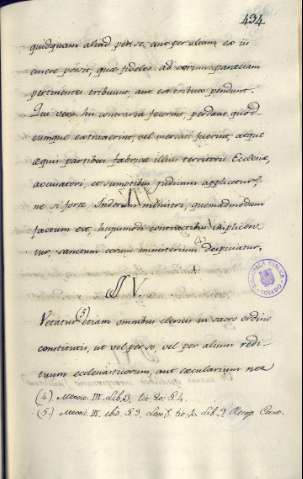 434
quidquam aliud petere, aut per alium ex iis
emere possit, quæ fideles ad eorum
pertinentes tribuunt, aut ex tributo pendunt.
Qui vero hiu contraria fecerit, perdant quod
cumque extraxerint, vel mercati fuerint, atque
æqui partibus fabricæ illius territorii Ecclesiæ,
accusatori, et sumptibus judicum applicetur,
ne si forte Indorum ministri, quemadmodum
factum est, hujusmodi contractibus implicen-
tur, sanctum eorum ministerium despiciatur.
§ V.
Vetatur (5) etiam omnibus clericis in sacris ordinibus
constitutis, ut vel per se, vel per alium redi-
tuum ecclesiasticorum, aut sæcularium nec
(4.) Mexic. III. Lib. 3. tit. §. 4.
(5.) Mexic. III. §. 3. Lib. 3.